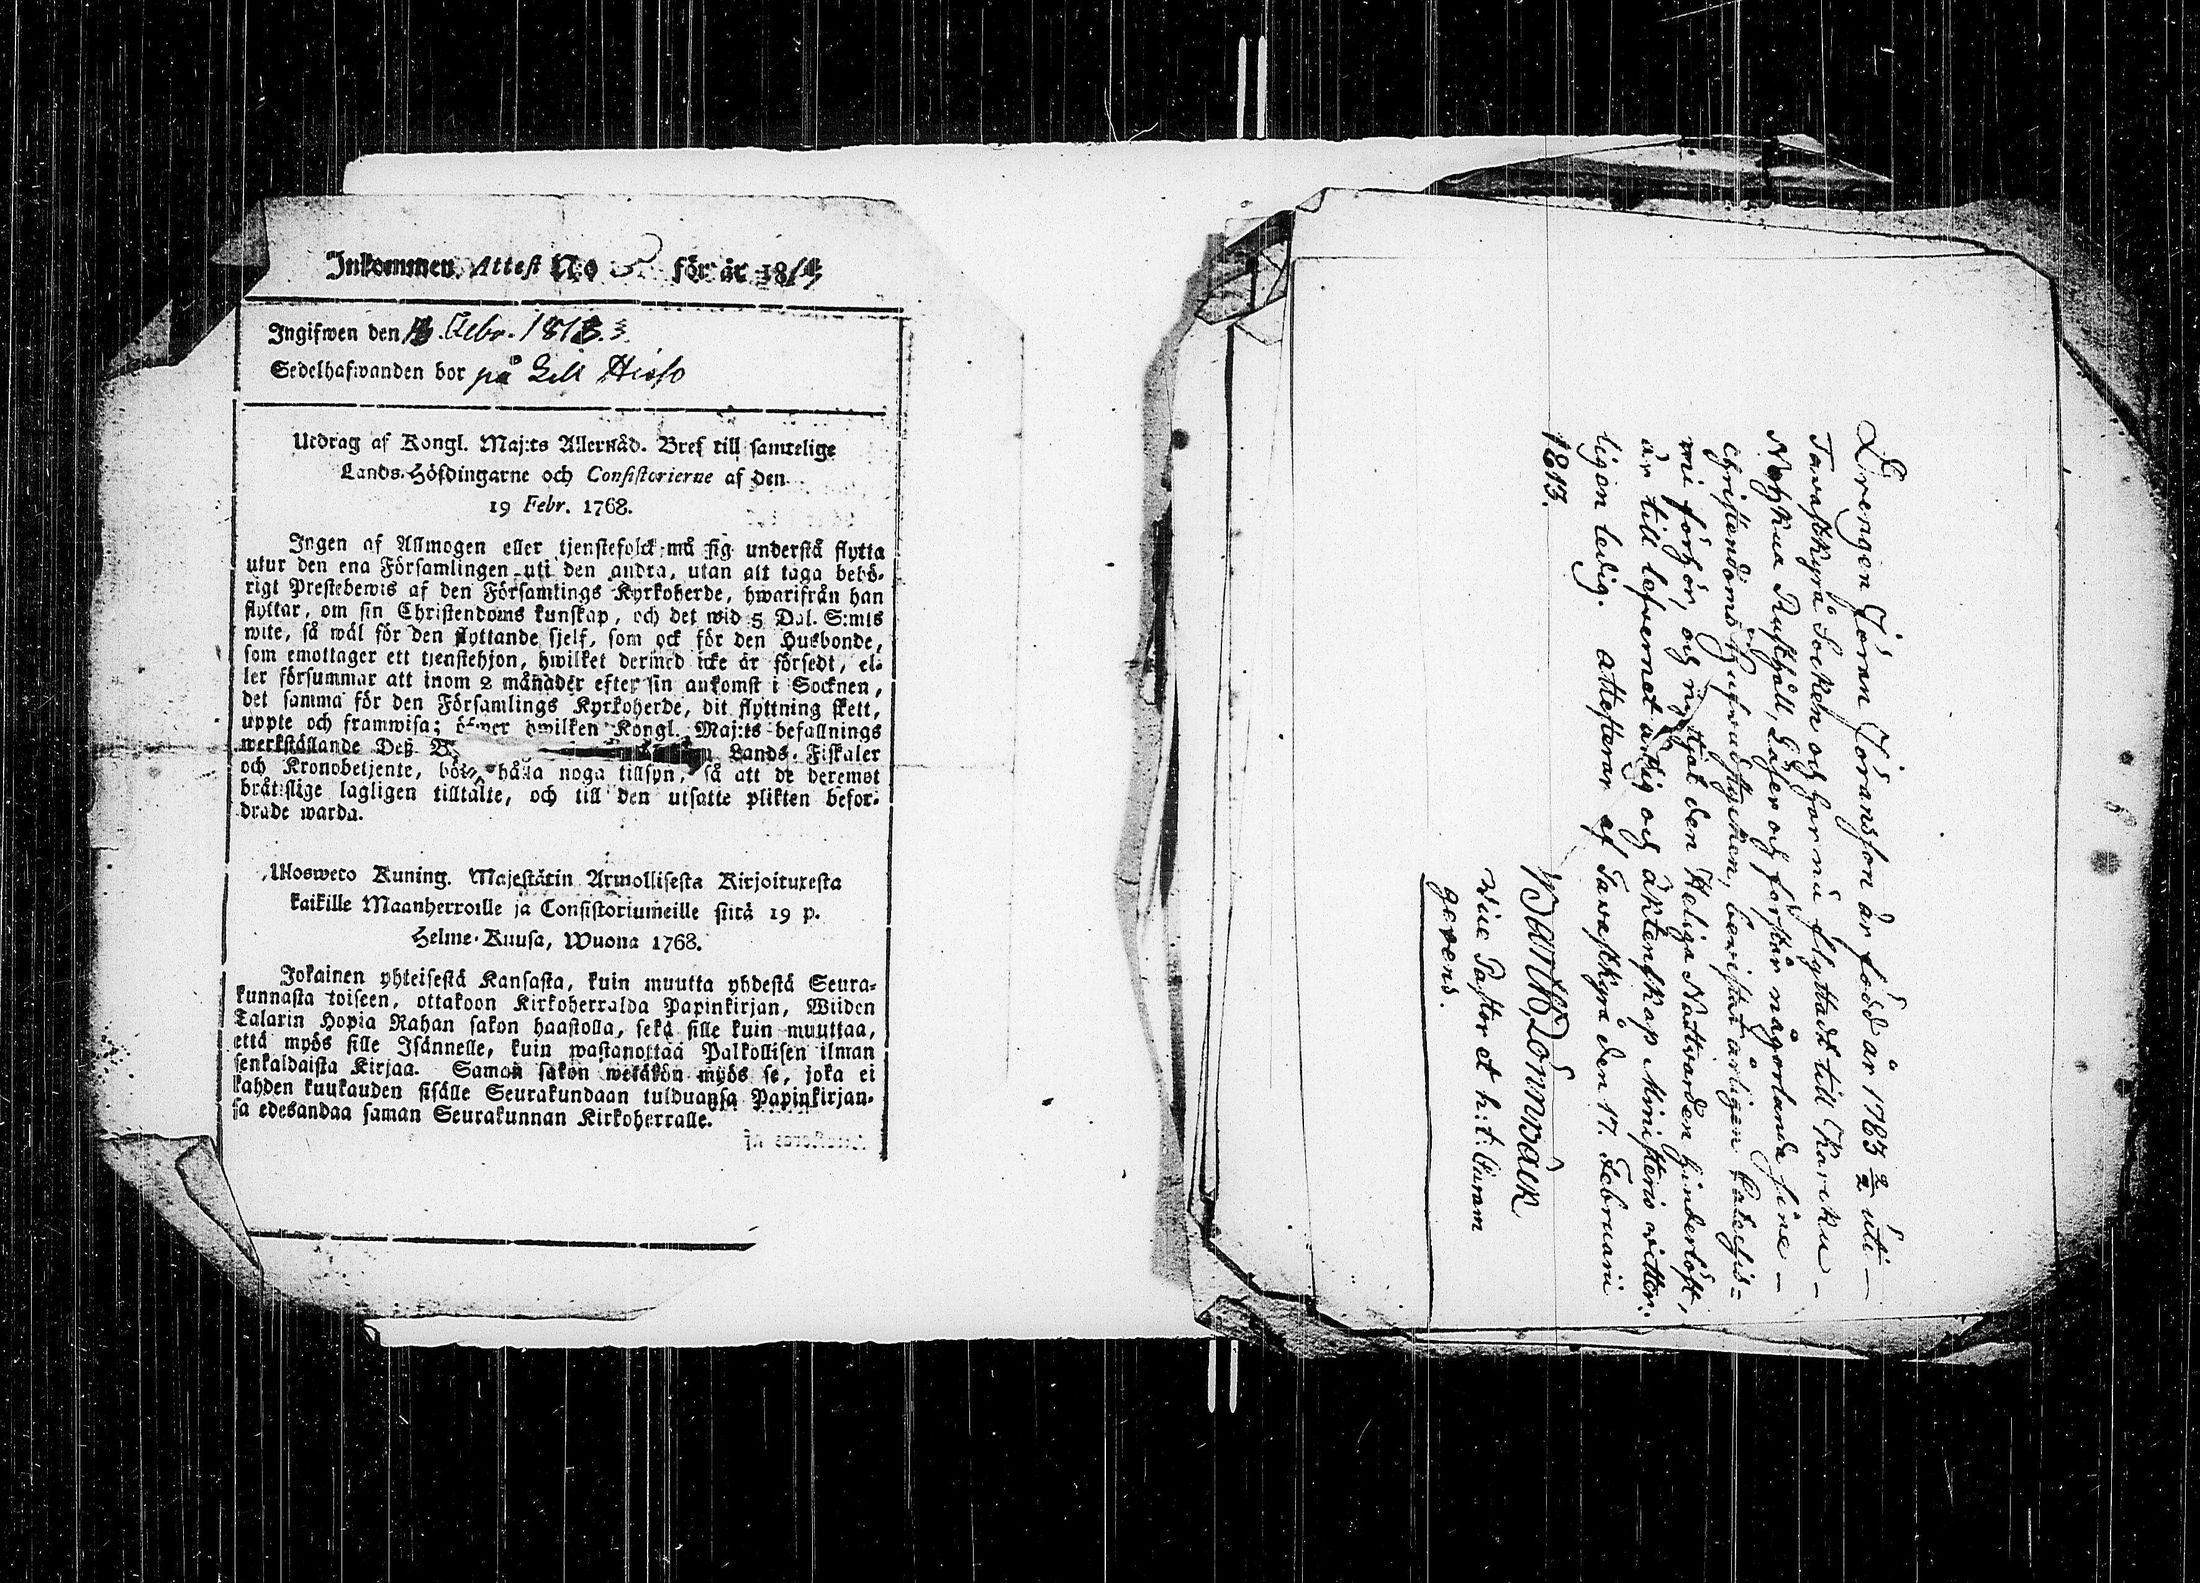 Inkommen Attest No för år 1813
Ingifwen den Febr. 1813.
Sedelhafwanden bor på Lill Hiiso
Utdrag af Kongl. Maj:ts Allernåd. Bref till samtelige
Lands-Höfdingarne och Consistorierne af den
19 Febr. 1768.
Ingen af Allmogen eller tjenstefolck må sig understå flytta
utur den ena Församlingen uti den andra, utan att taga behö-
rigt Prestebewis af den Församlings Kyrkoherde, hwarifrån han
flyttar, om sin Christendoms kunskap, och det wid 5 Dal. S:mts
wite, så wäl för den flyttande sjelf, som ock för den Husbonde,
som emottager ett tjenstehjon, hwilket dermed icke är försedt, el-
ler försummar att inom 2 månader efter sin ankomst i Socknen,
det samma för den Församlings Kyrkoherde, dit flyttning skett,
uppte och framwisa; öfwer hwilken Kongl. Maj:ts befallnings
werkställande Deß Lands-Fiskaler
och Kronobetjente, böra hålla noga tillsyn, så att de deremot
brätslige lagligen tilltalte, och till den utsatte plikten befor-
drade warda.
Ulosweto Kuning. Majestätin Armollisesta Kirjoituxesta
kaikille Maanherroille ja Consistoriumeille siitä 19 p.
Helme-Kuusa, Wuona 1768.
Jokainen yhteisestä Kansasta, kuin muutta yhdestä Seura-
kunnasta toiseen, ottakoon Kirkoherralda Papinkirjan, Wiiden
Talarin Hopia Rahan sakon haastolla, sekä sille kuin muuttaa,
että myös sille Isännelle, kuin wastanottaa Palkollisen ilman
senkaldaista Kirjaa. Saman sakon wetäkön myös se, joka ei
kahden kuukauden sisälle Seurakundaan tulduansa Papinkirjan-
sa edesandaa saman Seurakunnan Kirkoherralle.
Drengen Jöran Jöransson är född år 1783 2/2 uti
Tavastkyrå Socken och har nu flyttadt till Kareku
Nohkua Rusthåll, Läser och förstår någorlunda sine
Christendoms hufvudstycken, bevistat årligen Catechis-
mi förhör, och nyttjat den Heliga Nattvarden hinderlöst,
är till lefvernet ärlig och äktenskap Ministerio vitter-
ligen ledig. attesterar af Tavastkyrå den 17. Februarii
1813.
Barth. Lönnvaik
Vice Pastor et h: t: Curam
gerens.